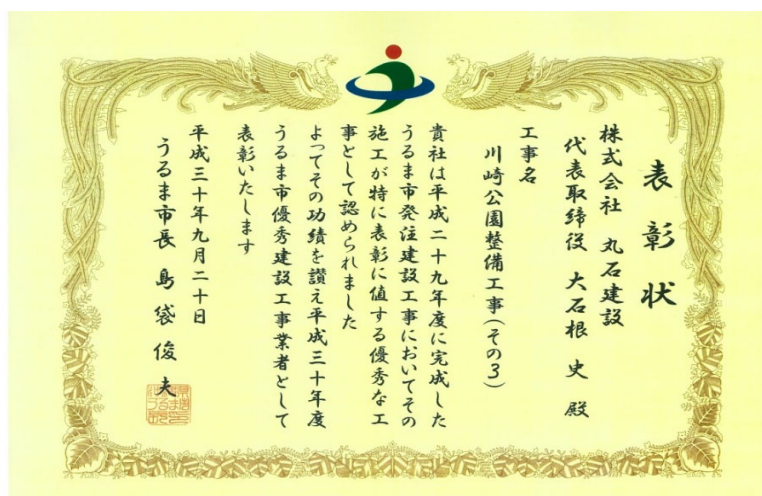 表彰状
株式会社 丸石建設
代表取締役 大石根 史 殿
工事名
川崎公園整備工事(その3)
貴社は平成二十九年度に完成した
うるま市発注建設工事においてその
施工が特に表彰に値する優秀な工
事として認められました
よってその功績を讃え平成三十年度
うるま市優秀建設工事業者として
表彰いたします
平成三十年九月二十日
うるま市長 島袋俊夫